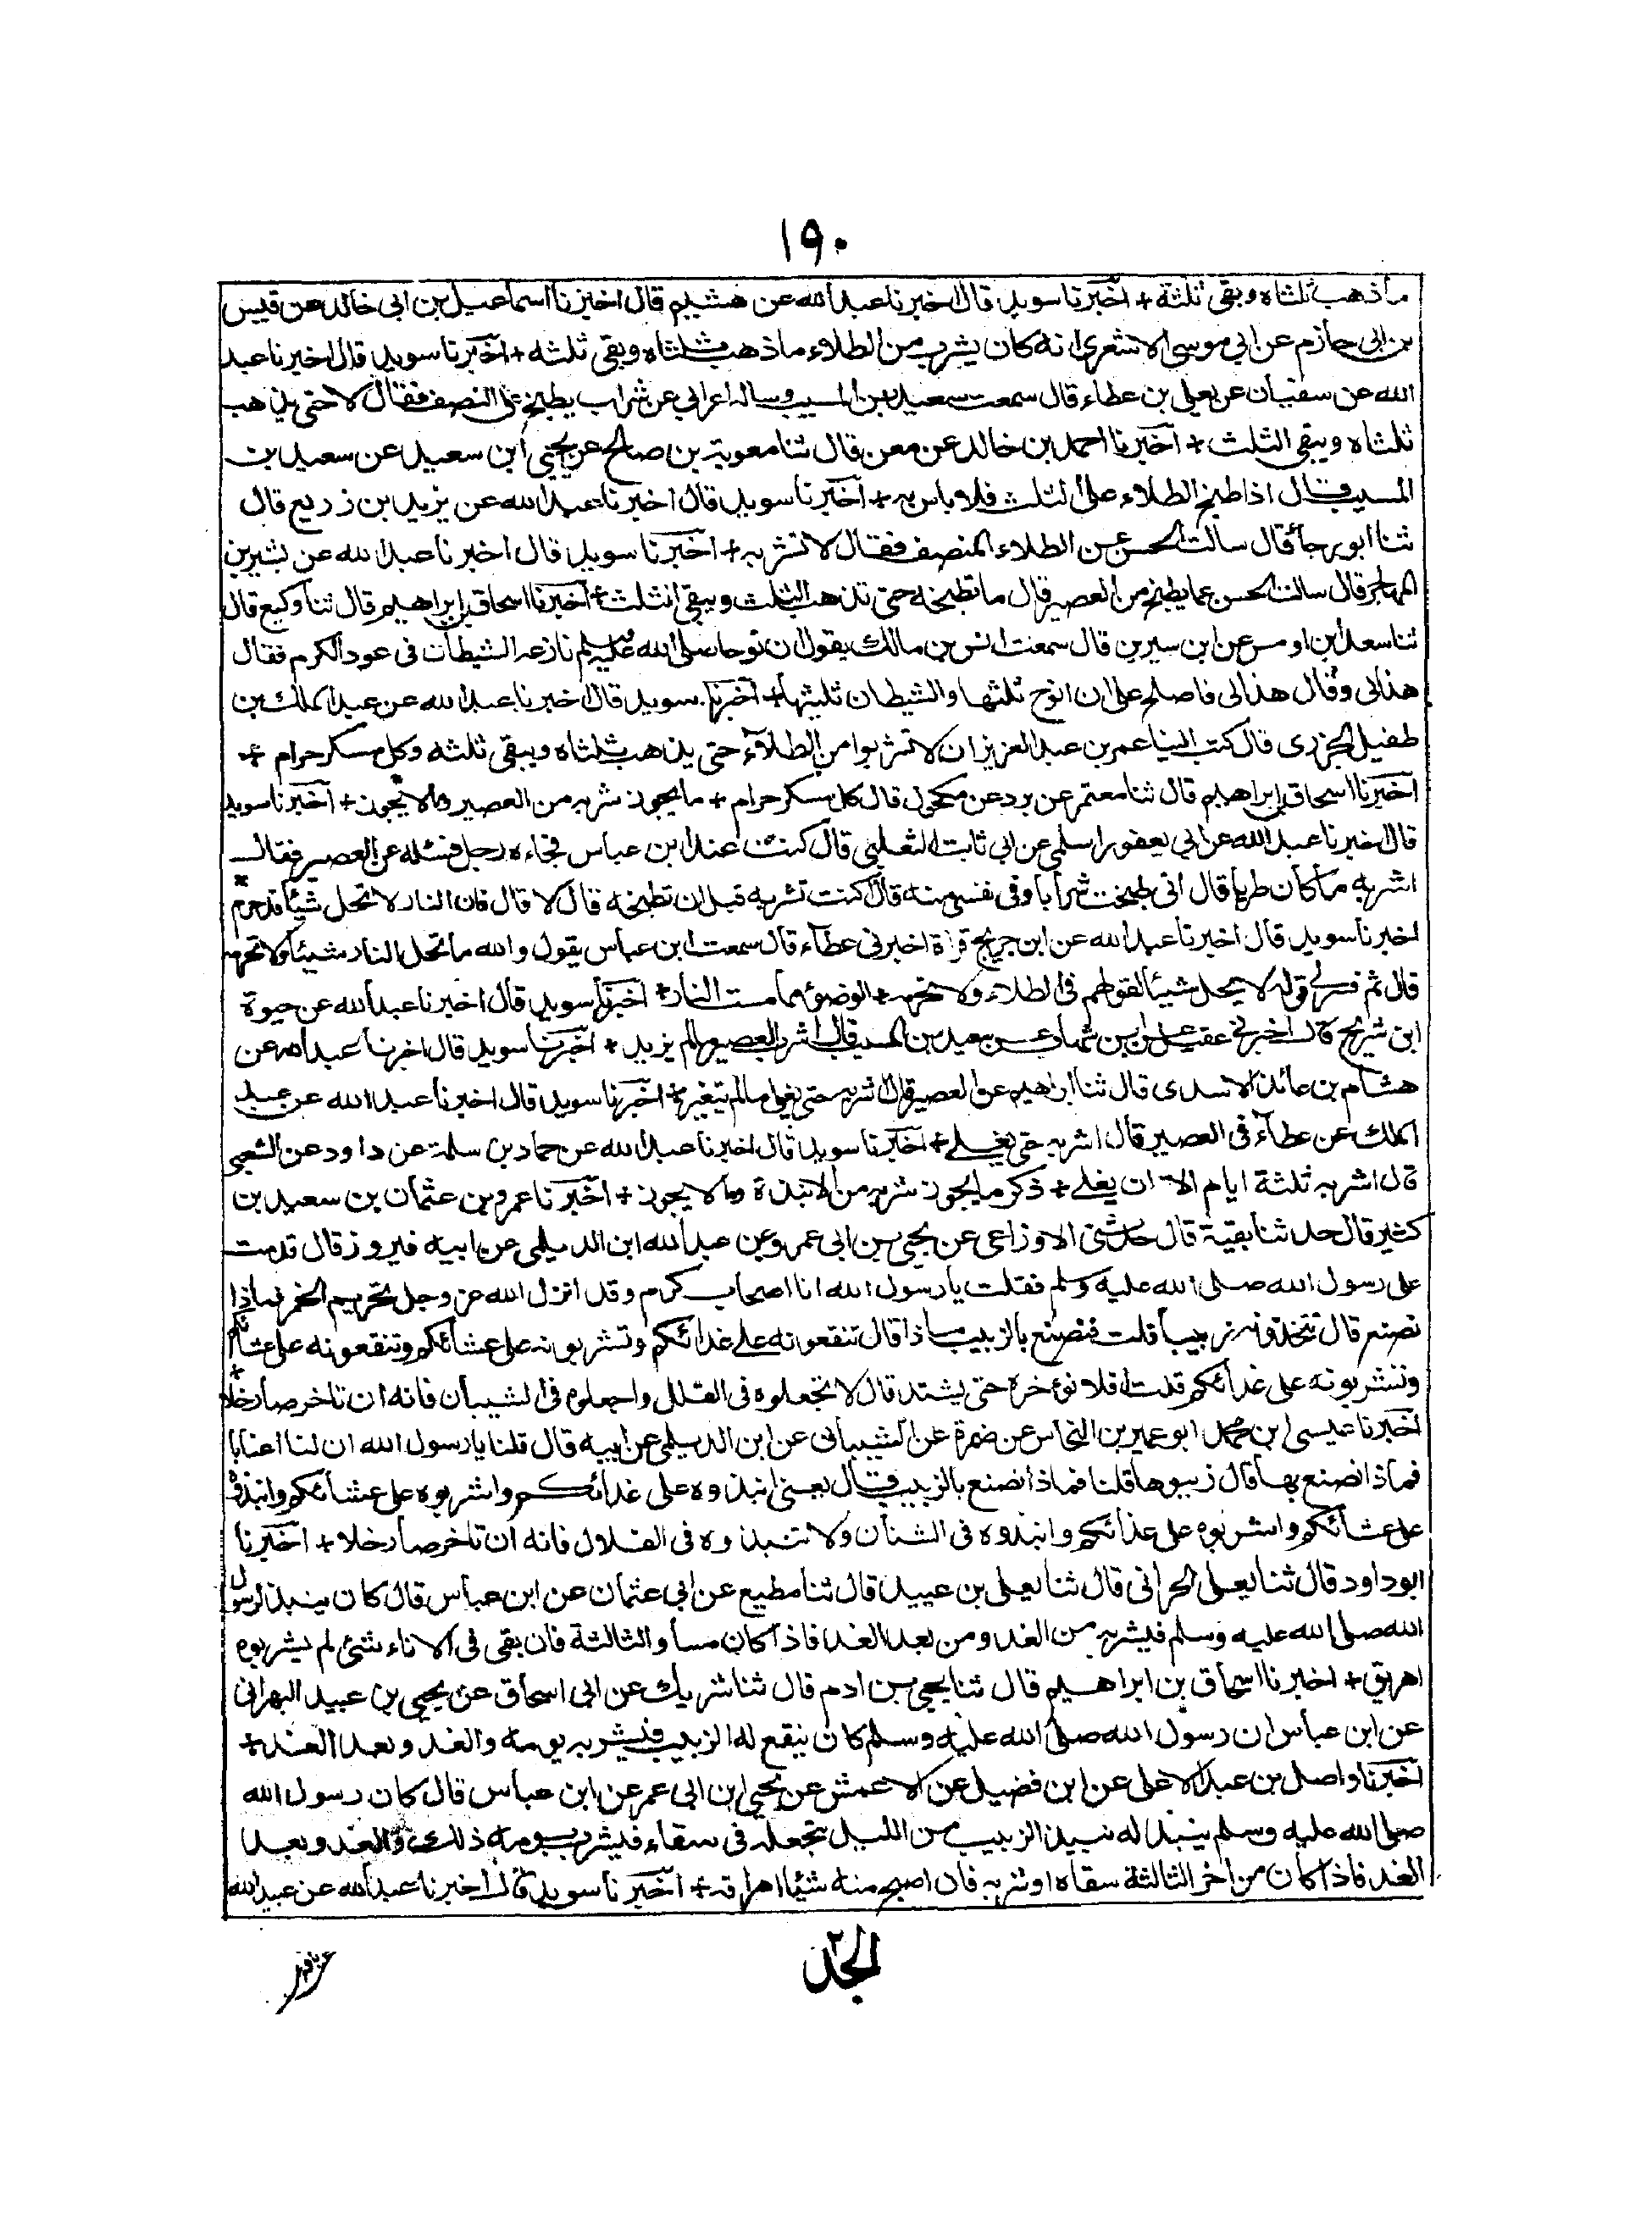 ١٩٠
ما ذهب ثلثاه وبقى ثلثة + اخبرنا سويد قال اخبرنا عبد الله عن هشيم قال اخبرنا اسماعيل بن ابى خالد عن قيس
بن ابى حازم عن ابي موسى الاشعرى انه كان يشرب من الطلاء ما ذهب ثلثاه وبقى ثلثه + اخبرنا سويد قال اخبرنا عبد
الله عن سفيان عن يعلى بن عطاء قال سمعت سعيد بن المسيب وساله اعرابي عن شراب يطبخ على النصف فقال لا حتى يذهب
ثلثاه ويبقى الثلث + اخبرنا احمد بن خالد عن معن قال ثنا معوية بن صالح عن يحيى ابن سعيد عن سعيد بن
المسيب قال اذا طبخ الطلاء على الثلث فلا باس به + اخبرنا سويد قال اخبرنا عبد الله عن يزيد بن زريع قال
ثنا ابو رجأ قال سالت الحسن عن الطلاء المنصف فقال لا تشربه + اخبرنا سويد قال اخبرنا عبد الله عن بشير بن
المهاجر قال سالت الحسن عما يطبخ من العصير قال ما تطبخه حتى تذهب الثلث ويبقى الثلث + اخبرنا اسحاق بن ابراهيم قال ثنا وكيع قال
ثنا سعد ابن اوس عن ابن سيرين قال سمعت انس بن مالك يقول ان نوحا صلى الله عليه وسلم نازعه الشيطان فى عود الكرم فقال
هذا لى وقال هذا لى فاصلح على ان لنوح ثلثها والشيطان ثلثيها + اخبرنا سويد قال اخبرنا عبد الله عن عبد الملك بن
طفيل الجزرى قال كتب الينا عمر بن عبد العزيز ان لا تشربوا من الطلاء حتى يذهب ثلثاه ويبقى ثلثه وكل مسكر حرام +
اخبرنا اسحاق بن ابراهيم قال ثنا معتمر عن برد عن مكحول قال كل مسكر حرام + ما يجوز شربه من العصير وما لا يجوز + اخبرنا سويد
قال اخبرنا عبد الله عن ابي يعفور اسلمى عن ابي ثابت الثعلبى قال كنت عند ابن عباس فجاءه رجل فسئله عن العصير فقال
اشربه ما كان طريا قال انى طبخت شرابا وفى نفسى منه قال اكنت تشربه قبل ان تطبخه قال لا قال فان النار لا تحل شيئا قد حرم
اخبرنا سويد قال اخبرنا عبد الله عن ابن جريج قراة اخبرنى عطاء قال سمعت ابن عباس يقول والله ما تحل النار شيئا ولا تحرمه
قال ثم فسر لى قوله لا يحل شيئا لقولهم فى الطلاء ولا تحرمه + الوضوء مما مست النار + اخبرنا سويد قال اخبرنا عبد الله عن حيوة
ابن شريح قال اخبرنى عقيل عن ابن شهاب عن سعيد بن المسيب قال اشرب العصير ما لم يزبد + اخبرنا سويد قال اخبرنا عبد الله عن
هشام بن عائذ الاسدى قال ثنا ابراهيم عن العصير قال اشربه حتى يغلى ما لم يتغير + اخبرنا سويد قال اخبرنا عبد الله عن عبد
الملك عن عطاء فى العصير قال اشربه حتى يغلى + اخبرنا سويد قال اخبرنا عبد الله عن حماد بن سلمة عن داود عن الشعبى
قال اشربه ثلثة ايام الا ان يغلى + ذكر ما يجوز شربه من الانبذة وما لا يجوز + اخبرنا عمرو بن عثمان بن سعيد بن
كثير قال حدثنا بقية قال حدثنى الاوزاعى عن يحيى بن ابى عمرو عن عبد الله ابن الديلمى عن ابيه فيروز قال قدمت
على رسول الله صلى الله عليه وسلم فقلت يا رسول الله انا اصحاب كرم وقد انزل الله عز وجل تحريم الخمر فماذا
نصنع قال تتخذونه زبيبا قلت فنصنع بالزبيب ماذا قال تنقعونه على غدائكم وتشربونه على عشائكم وتنقعونه على عشائكم
وتشربونه على غدائكم قلت افلا نوءخره حتى يشتد قال لا تجعلوه فى القلل واجعلوه فى الشيبان فانه ان تاخر صار خلا
اخبرنا عيسى ابن محمد ابو عمير بن النحاس عن ضمرة عن الشيبانى عن ابن الديلمى عن ابيه قال قلنا يا رسول الله ان لنا اعنابا
فماذا نصنع بها قال زببوها قلنا فماذا نصنع بالزبيب قال يعنى انبذوه على غدائكم واشربوه على عشائكم وانبذوه
على عشائكم واشربوه على غذائكم وانبذوه فى الشنان ولا تنبذوه فى القلال فانه ان تاخر صار خلا + اخبرنا
ابو داود قال ثنا يعلى الحرانى قال ثنا يعلى بن عبيد قال ثنا مطيع عن ابى عثمان عن ابن عباس قال كان ينبذ لرسول
الله صلى الله عليه وسلم فيشربه من الغد ومن بعد الغد فاذا كان مسأ والثالثة فان بقى فى الاناء شئ لم يشربوه
اهريق + اخبرنا اسحاق بن ابراهيم قال ثنا يحيى بن ادم قال ثنا شريك عن ابى اسحاق عن يحيى بن عبيد البهرانى
عن ابن عباس ان رسول الله صلى الله عليه وسلم كان ينقع له الزبيب فيشربه يومه والغد وبعد الغد +
اخبرنا واصل بن عبد الاعلى عن ابن فضيل عن الاعمش عن يحيى ابن ابى عمر عن ابن عباس قال كان رسول الله
صلى الله عليه وسلم ينبذ له نبيذ الزبيب من الليل يجعله فى سقاء فيشربه يومه ذلك والغد وبعد
الغد فاذا كان من اخر الثالثة سقاه او شربه فان اصبح منه شيئا اهراقه + اخبرنا سويد قال اخبرنا عبد الله عن عبيد الله